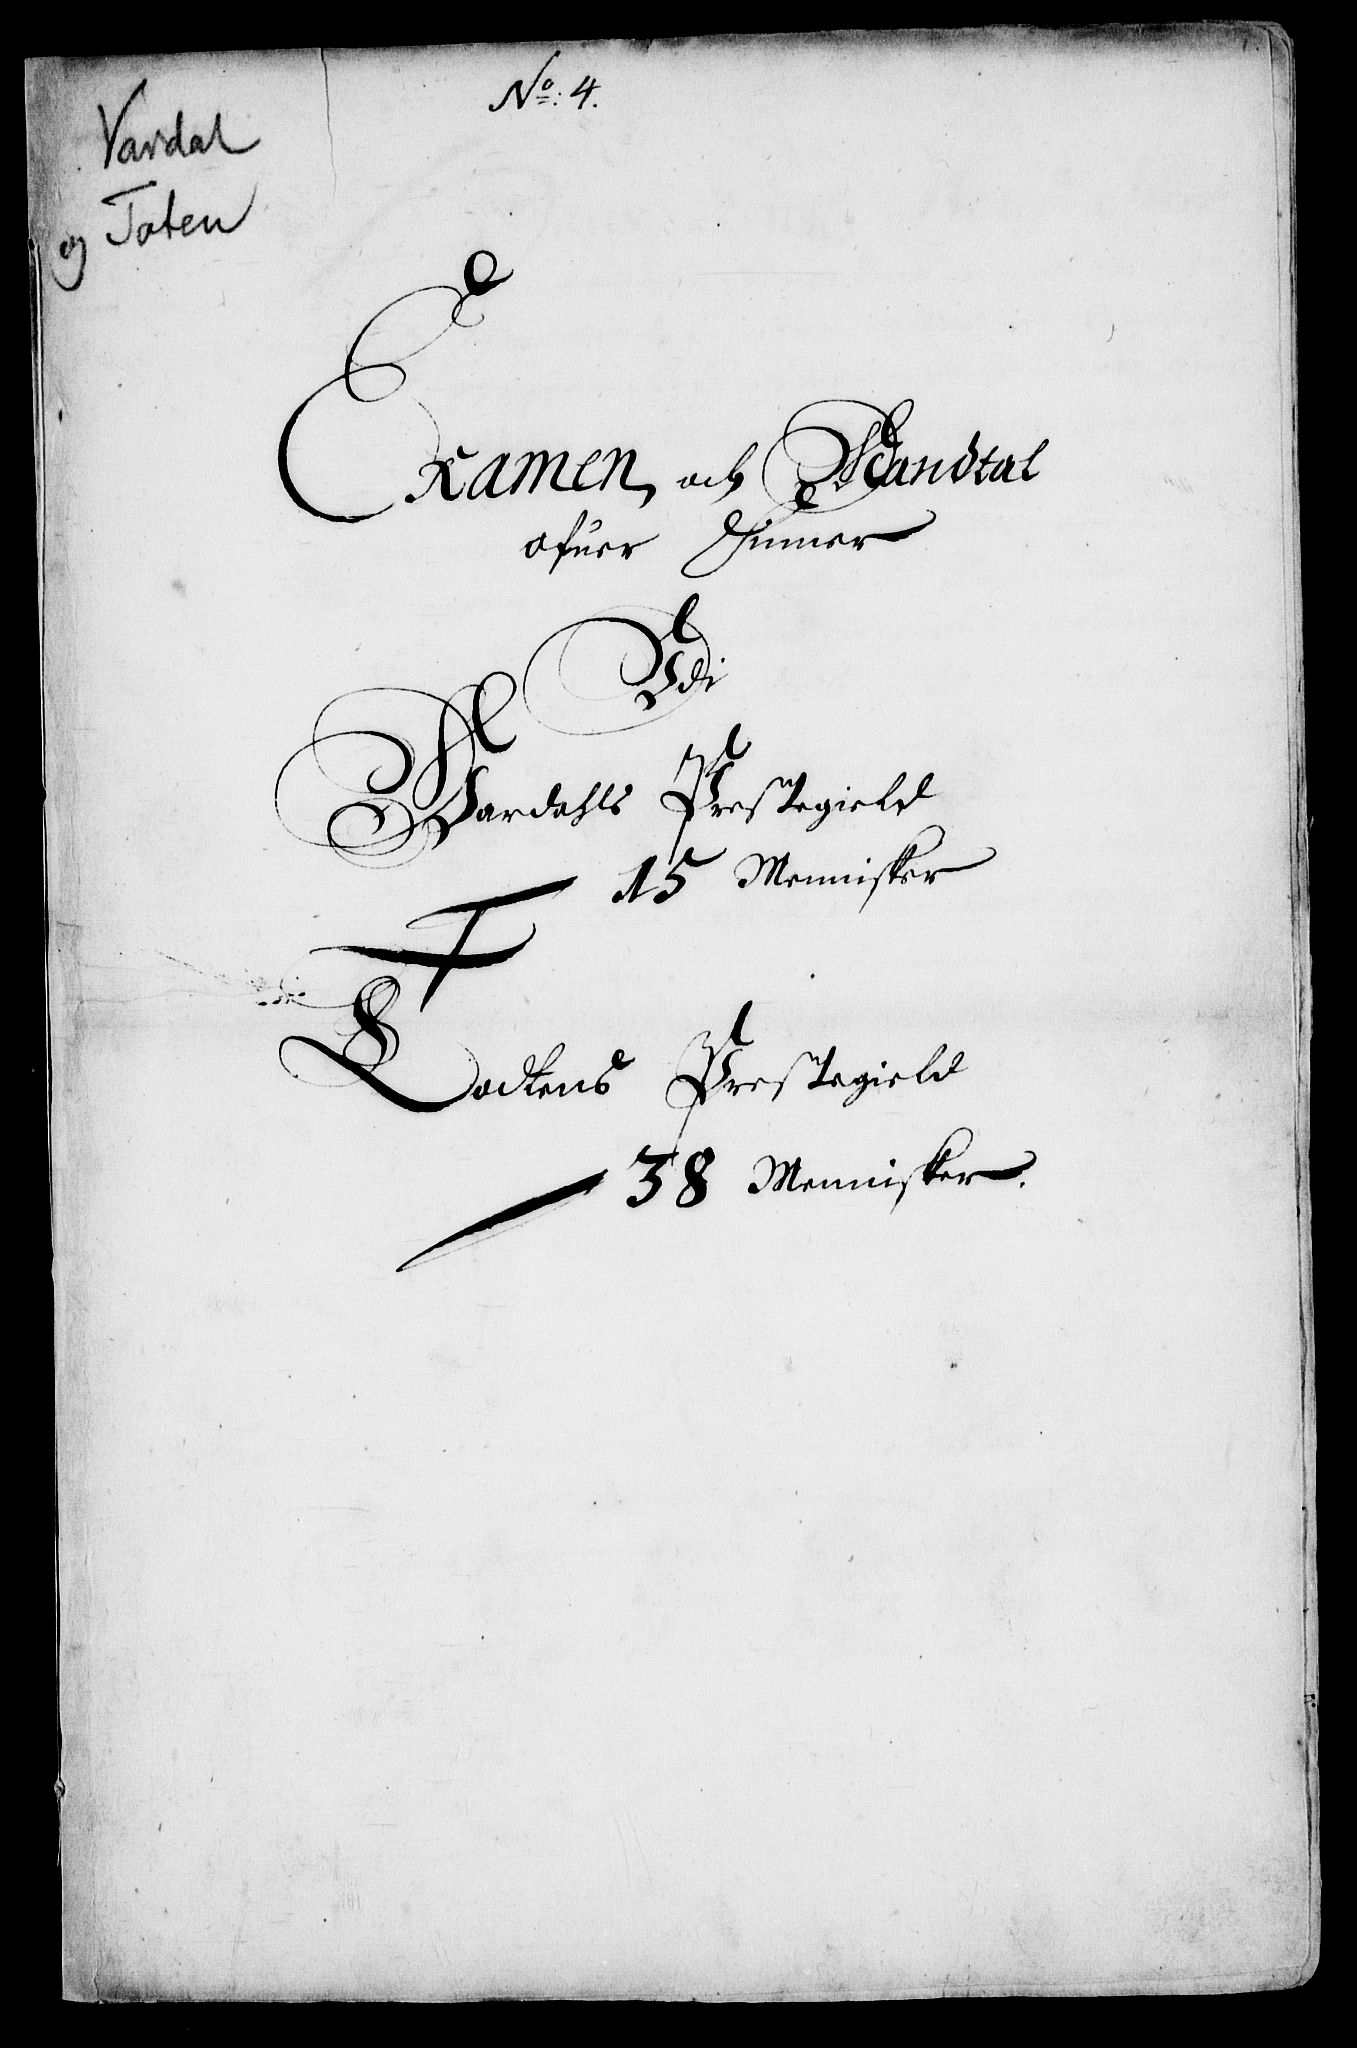 No: 4.
Vardal
og Toten
Examen, och Mandtal
ofuer Finner
Udi
Wardahls Prestegield
15 Mennisker
Todtens Prestegield
38 Mennisker.